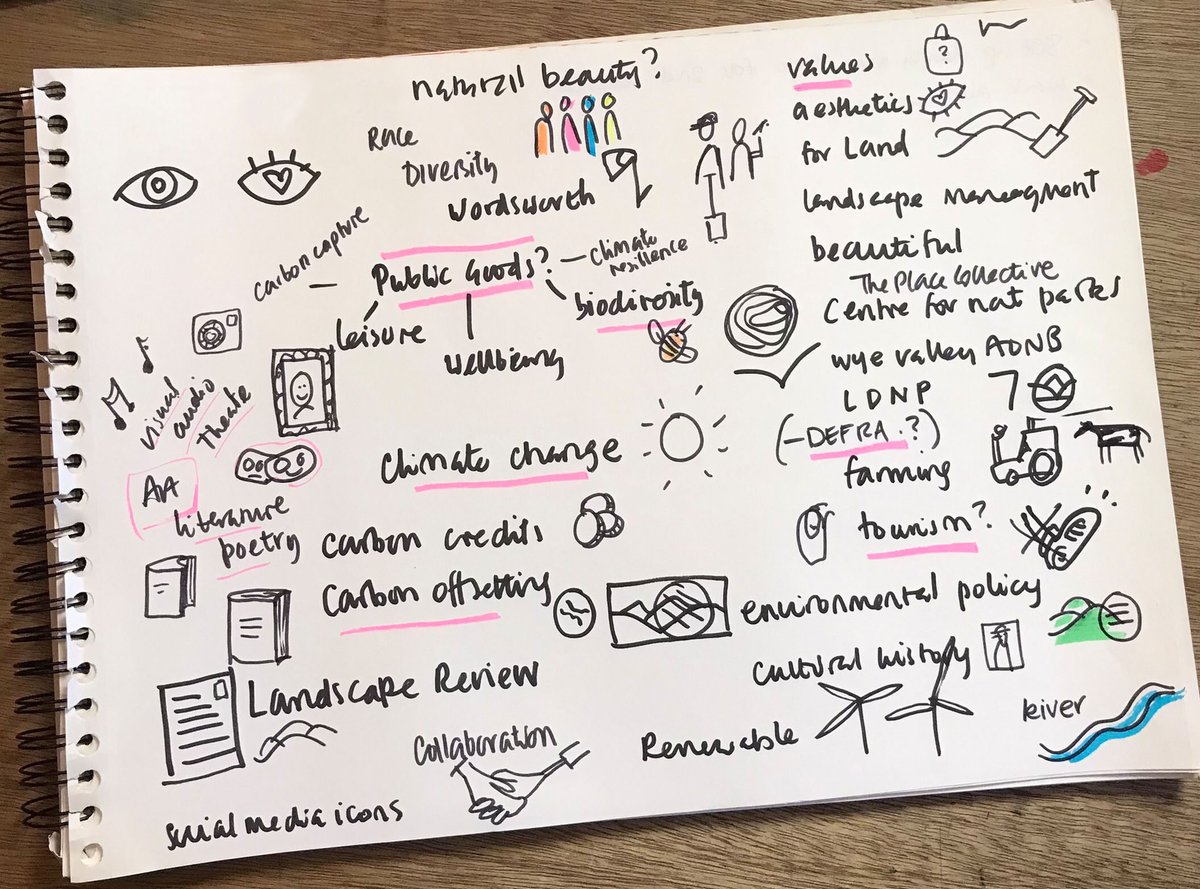 natural beauty?
Race
Diversity
Wordsworth
carbon capture
Public Goods?
climate
resilience
leisure
wellbieng
biodirosity
visual
audio
Theate
Art
literature
poetry
climate change
carbon credits
Carbon offsetting
Landscape Review
Collaboration
social media icons
values
?
aesthetics
for Land
landscape management
beautiful
The Place Collective
Centre for nat parks
wye valley AONB
LDNP
(-DEFRA.?)
farming
tourism?
environmental policy
cultural history
Renewable
River